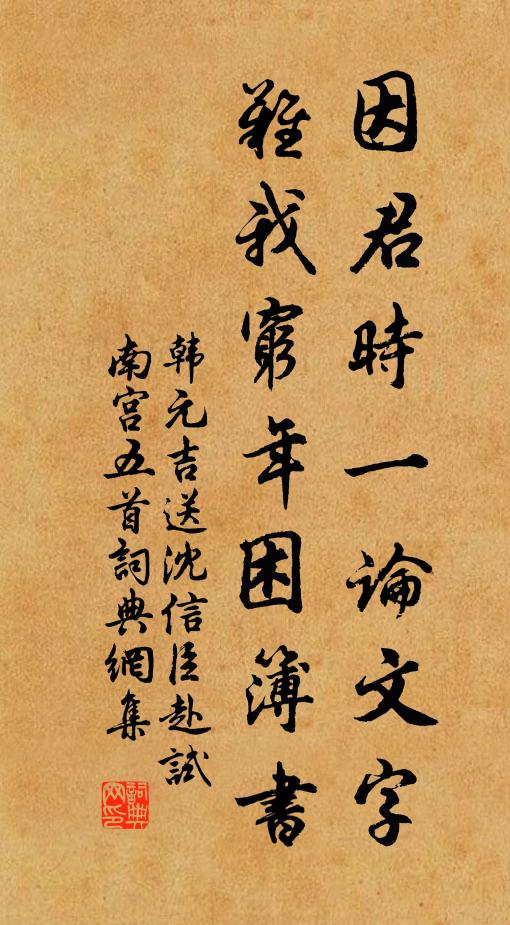 因君時一論文字
難我窮年困簿書
韩元吉送沈信臣赴試
南宫五首詞典網集
詞典
网印